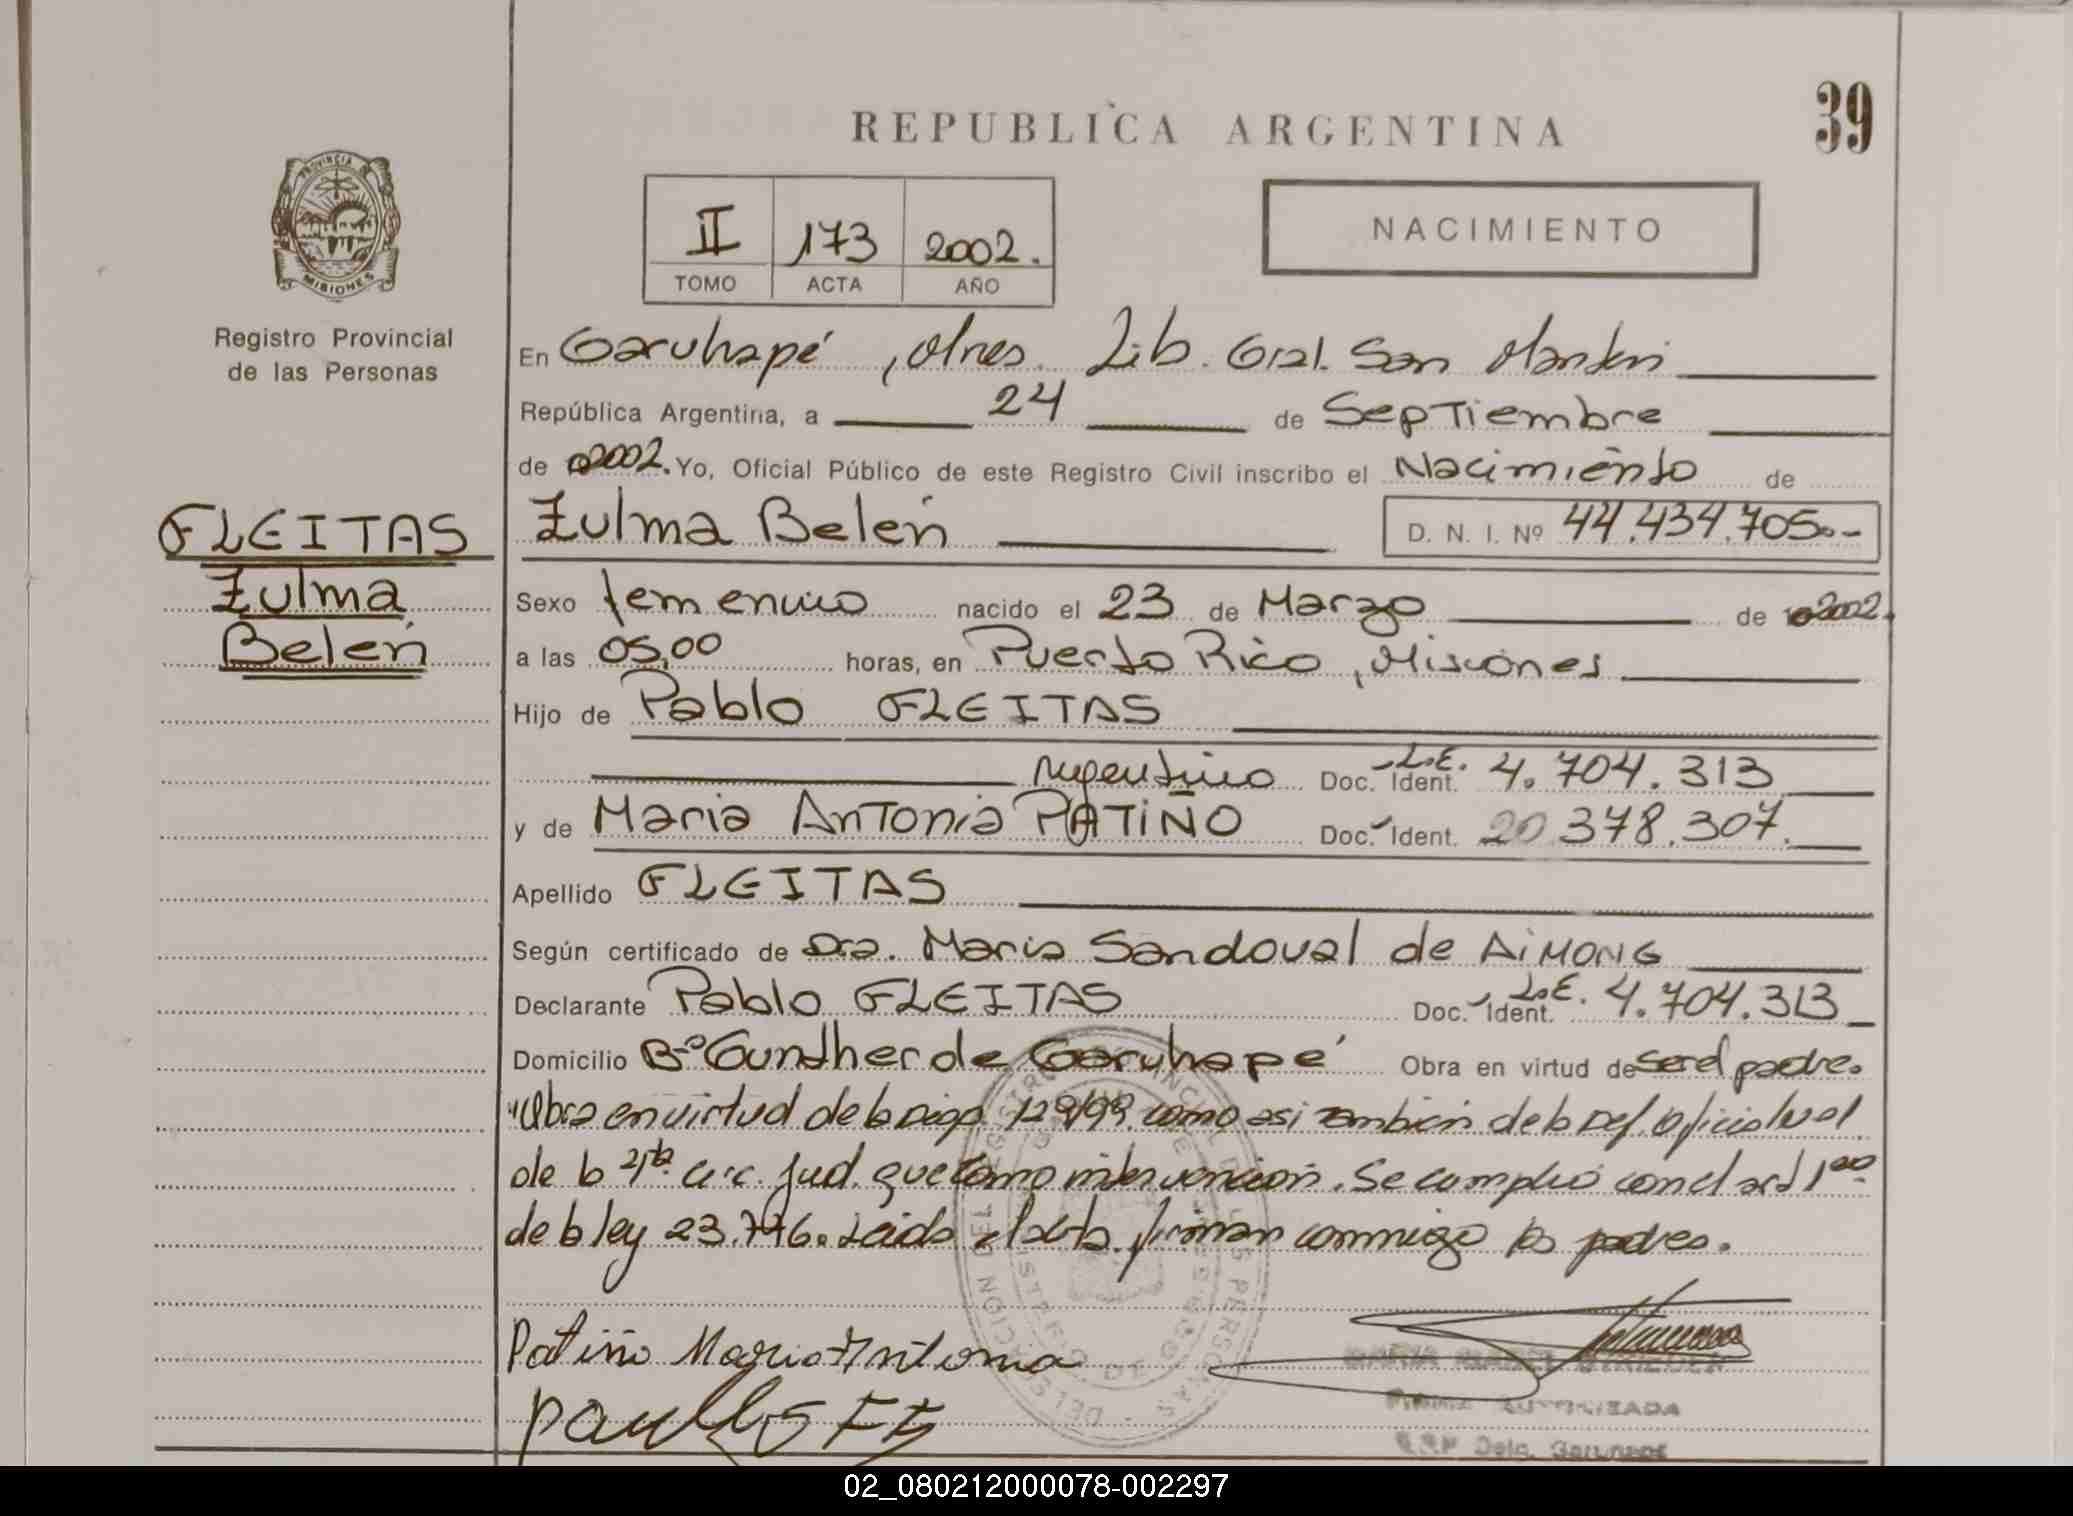 REPUBLICA ARGENTINA
39
PROVINCIA DE
MISIONES
Registro Provincial
de las Personas
II 173 2002.
TOMO ACTA AÑO
NACIMIENTO
En Garuhapé, Mnes. Lib. Gral. San Martín
República Argentina, a 24 de Septiembre
de 2002. Yo, Oficial Público de este Registro Civil inscribo el Nacimiento de
FLEITAS
Zulma
Belén
Zulma Belén D. N. I. Nº 44.434.705.-
Sexo femenino nacido el 23 de Marzo de 2002.
a las 05,00 horas, en Puerto Rico, Misiones
Hijo de Pablo FLEITAS
Argentino Doc. Ident. L.E. 4.704.313
y de Maria Antonia PATIÑO Doc. Ident. 20.378.307.
Apellido FLEITAS
Según certificado de Dra. Maria Sandoval de AiMONG
Declarante Pablo FLEITAS Doc. Ident. L.E. 4.704.313
Domicilio Bº Gunther de Garuhapé Obra en virtud de ser el padre.
"Obra en virtud de la Disp. 129/99. como asi también de la Def. Oficial
de la 4ta. Circ. Jud. que tomo intervención. Se cumplió con el art 1ro.
de la ley 23.776. Leida el acta. firman conmigo los padres.
Patiño Maria Antonia
FIRMA AUTORIZADA
RRP Deleg. Garuhapé
02_080212000078-002297